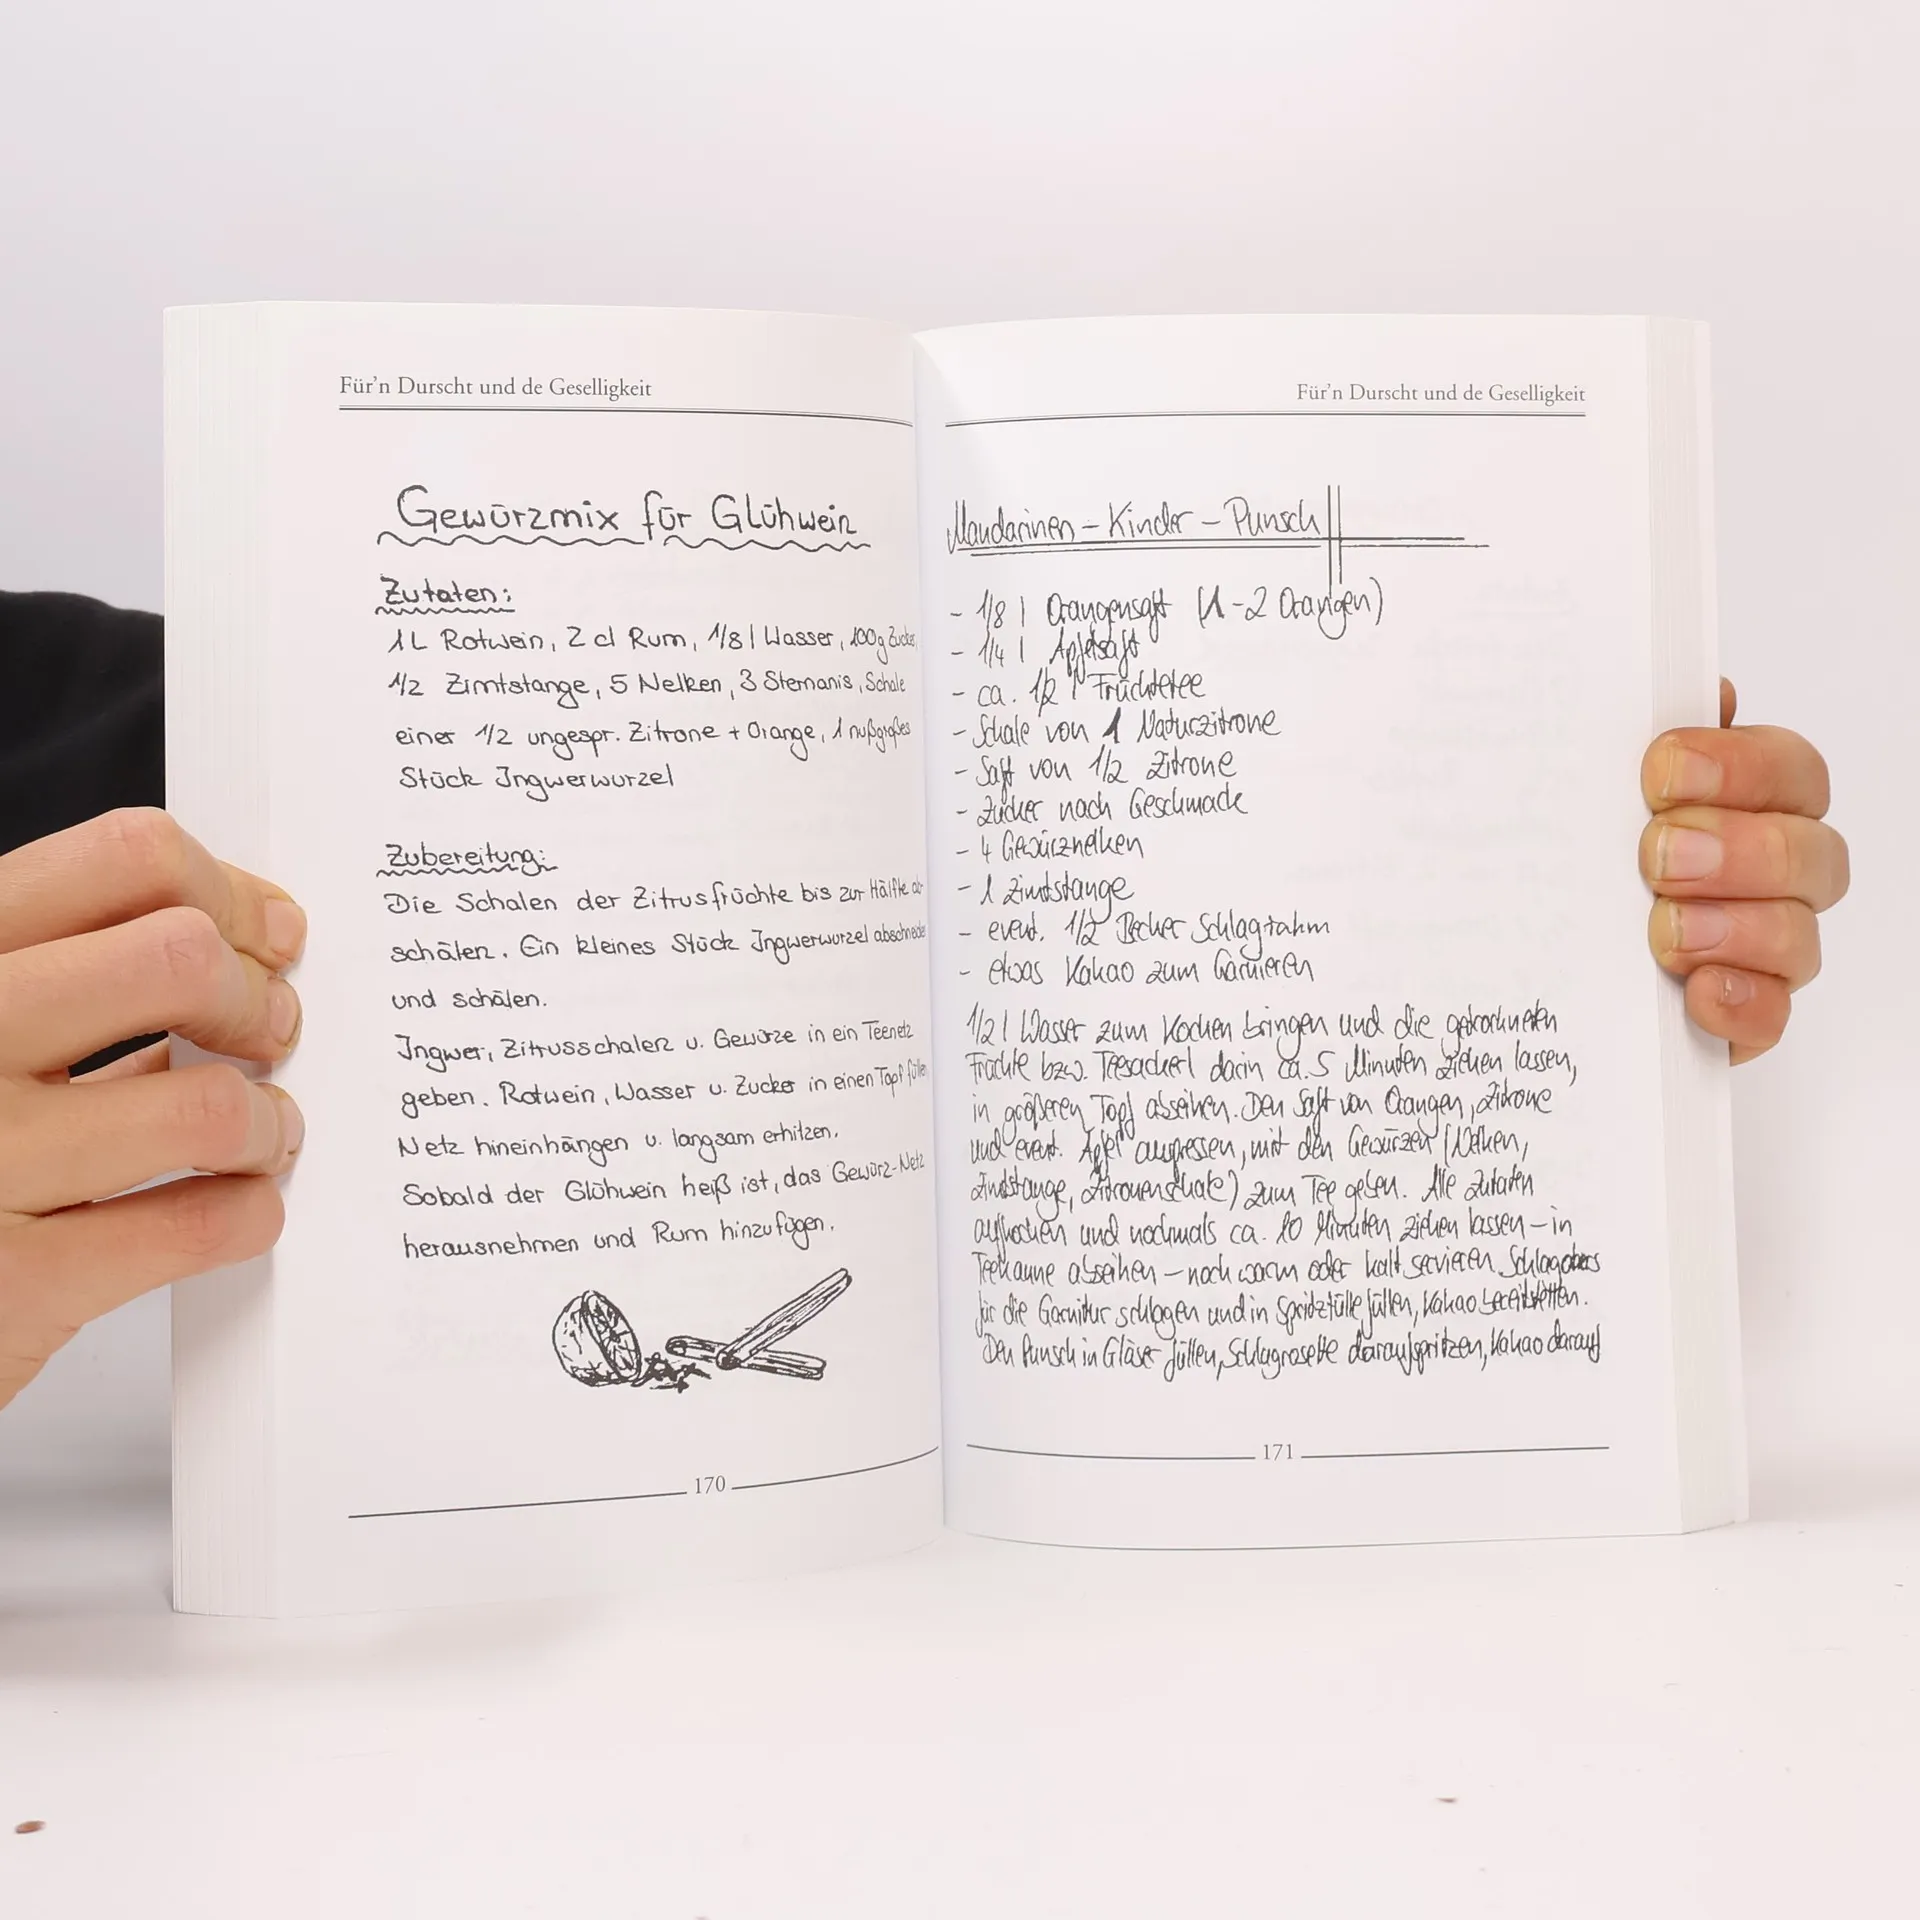 Für'n Durscht und de Geselligkeit
Gewürzmix für Glühwein
Zutaten:
1L Rotwein, 2 cl Rum, 1/8 l Wasser, 100g Zucker,
1/2 Zimtstange, 5 Nelken, 3 Sternanis, Schale
einer 1/2 ungespr. Zitrone + Orange, 1 nußgroßes
Stück Ingwerwurzel
Zubereitung:
Die Schalen der Zitrusfrüchte bis zur Hälfte ab-
schälen. Ein kleines Stück Ingwerwurzel abschneiden
und schälen.
Ingwer, Zitrusschalen u. Gewürze in ein Teenetz
geben. Rotwein, Wasser u. Zucker in einen Topf füllen
Netz hineinhängen u. langsam erhitzen.
Sobald der Glühwein heiß ist, das Gewürz-Netz
herausnehmen und Rum hinzufügen.
170
Für'n Durscht und de Geselligkeit
Mandarinen - Kinder - Punsch
- 1/8 l Orangensaft (1-2 Orangen)
- 1/4 l Apfelsaft
- ca. 1/2 l Früchtetee
- Schale von 1 Naturzitrone
- Saft von 1/2 Zitrone
- Zucker nach Geschmack
- 4 Gewürznelken
- 1 Zimtstange
- event. 1/2 Becher Schlagrahm
- etwas Kakao zum Garnieren
1/2 l Wasser zum Kochen bringen und die getrockneten
Früchte bzw. Teesackerl darin ca. 5 Minuten ziehen lassen,
in größeren Topf abseihen. Den Saft von Orangen, Zitrone
und event. Apfel auspressen, mit den Gewürzen (Nelken,
Zimtstange, Zitronenschale) zum Tee geben. Alle Zutaten
aufkochen und nochmals ca. 10 Minuten ziehen lassen - in
Teekanne abseihen - noch warm oder kalt servieren. Schlagobers
für die Garnitur schlagen und in Spritztülle füllen, Kakao bereitstellen.
Den Punsch in Gläser füllen, Schlagrosette daraufspritzen, Kakao darauf
171